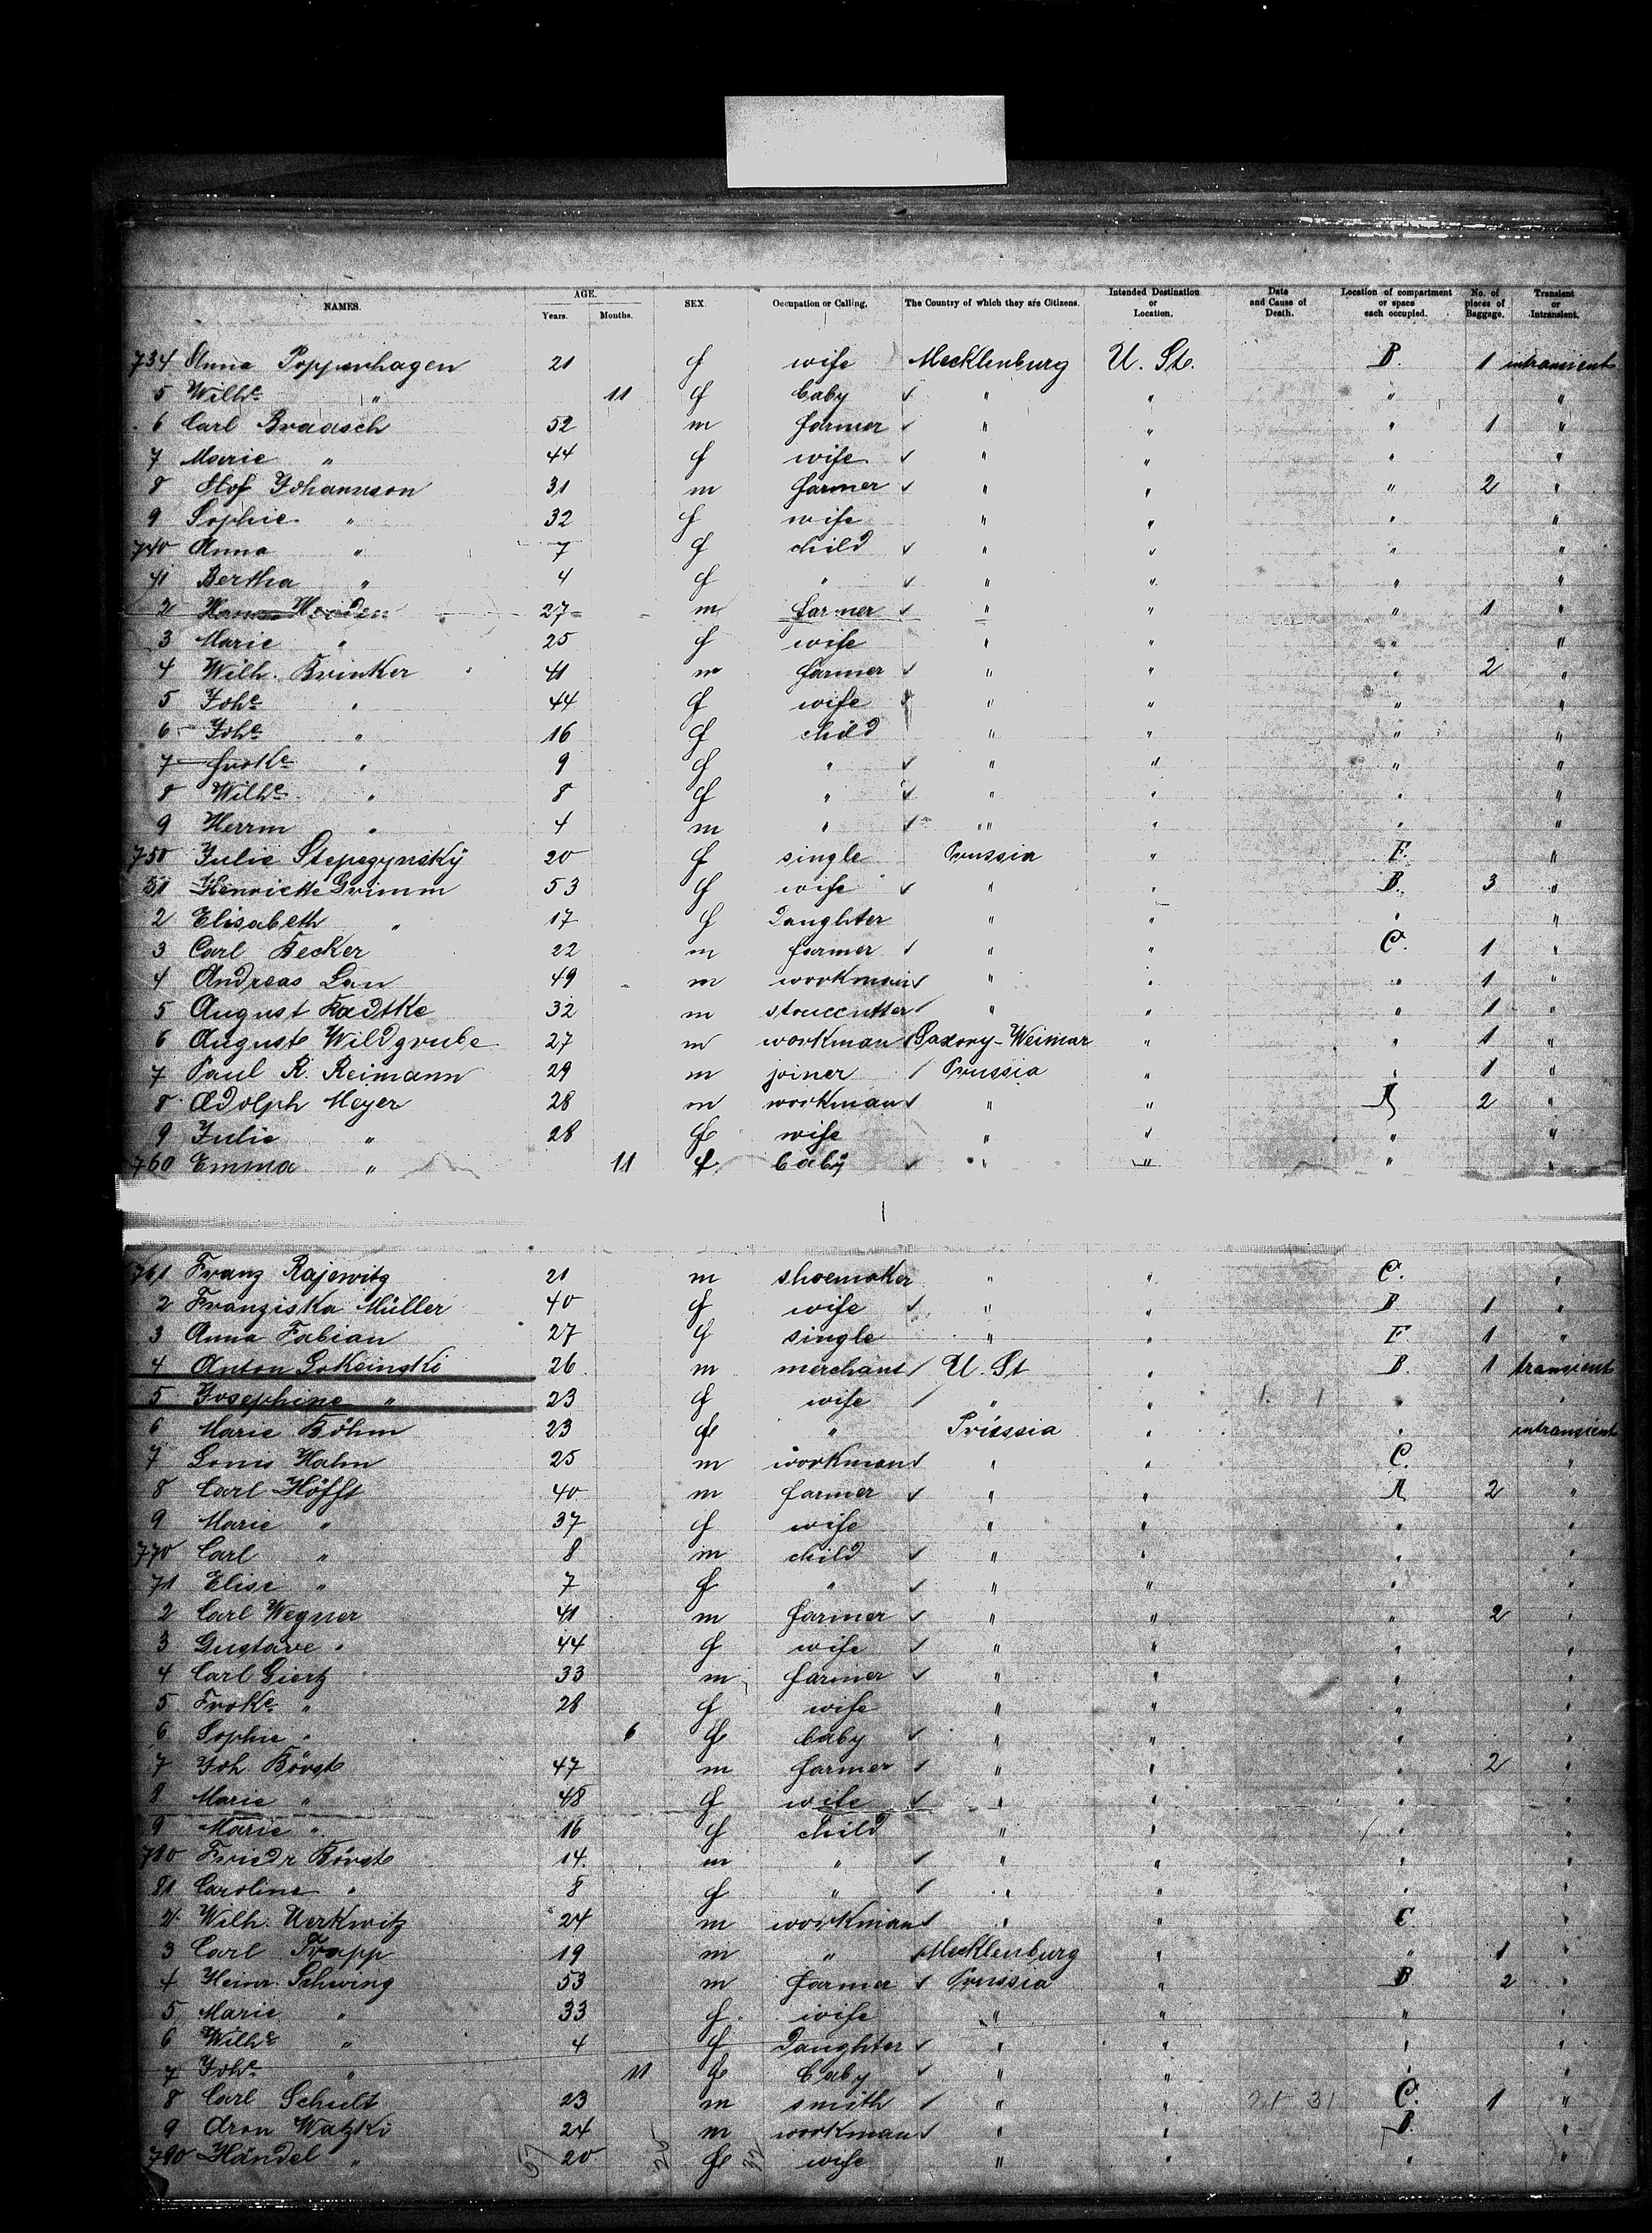 NAMES. AGE. Years. Months. SEX. Occupation or Calling. The Country of which they are Citizens. Intended Destination or Location. Date and Cause of Death. Location of compartment or space each occupied. No. of pieces of Baggage. Transient or Intransient.
734 Anna Poppenhagen 21 f wife Mecklenburg U. St. B. 1 intransient
5 Wilhe " 11 f baby ✓ " " " "
6 Carl Braasch 52 m farmer ✓ " " " 1 "
7 Marie " 44 f wife ✓ " " " "
8 Olof Johannson 31 m farmer ✓ " " " 2 "
9 Sophie " 32 f wife " " " "
740 Anna " 7 f child ✓ " " " "
41 Bertha " 4 f " ✓ " " " "
2 27 m farmer ✓ " " " 1 "
3 Marie " 25 f wife " " " "
4 Wilh. Brinker 41 m farmer ✓ " " " 2 "
5 Johe " 44 f wife ✓ " " " "
6 Johe " 16 f child " " " "
7 " 9 f " ✓ " " " "
8 Wilhe " 8 f " ✓ " " " "
9 Herrm " 4 m " ✓ " " " "
750 Julie 20 f single Prussia " F. "
51 Henriette Grimm 53 f wife ✓ " " B. 3 "
2 Elisabeth " 17 f Daughter " " " "
3 Carl Becker 22 m farmer ✓ " " C. 1 "
4 Andreas Lau 49 m workman ✓ " " " 1 "
5 August Radtke 32 m stonecutter ✓ " " " 1 "
6 Auguste Wildgrube 27 m workman ✓ Saxony-Weimar " " 1 "
7 Paul R. Reimann 29 m joiner ✓ Prussia " " 1 "
8 Adolph Meyer 28 m workman ✓ " " A 2 "
9 Julie " 28 f wife " " " "
760 Emma " 11 f baby ✓ " " " "
761 Franz Rajewitz 21 m shoemaker " " C. "
2 Franziska Müller 40 f wife ✓ " " B 1 "
3 Anna Fabian 27 f single " " F 1 "
4 Anton 26 m merchant ✓ U. St " B. 1 transient
5 Josephine " 23 f wife ✓ " " " "
6 Marie Böhm 23 f " Prussia " " intransient
7 Louis Hahn 25 m workman ✓ " " C. "
8 Carl Höfft 40 m farmer ✓ " " A 2 "
9 Marie " 37 f wife " " " "
770 Carl " 8 m child ✓ " " " "
71 Elise " 7 f " ✓ " " " "
2 Carl Wegner 41 m farmer ✓ " " " 2 "
3 Gustave " 44 f wife ✓ " " " "
4 Carl Giertz 33 m farmer ✓ " " " "
5 " 28 f wife " " " "
6 Sophie " 6 f baby ✓ " " " "
7 Joh. Börst 47 m farmer ✓ " " " 2 "
8 Marie " 48 f wife ✓ " " " "
9 Marie " 16 f child " " " "
780 Friedr Börst 14 m " ✓ " " " "
81 Caroline " 8 f " ✓ " " " "
2 Wilh. Uerkwitz 24 m workman ✓ " " C "
3 Carl Trapp 19 m " Mecklenburg " " 1 "
4 Heinr. Schwing 53 m farmer ✓ Prussia " B 2 "
5 Marie " 33 f wife " " " "
6 Wilhe " 4 f Daughter ✓ " " " "
7 Johe " 11 f baby ✓ " " " "
8 Carl Schult 23 m smith ✓ " " C. 1 "
9 Aron Watzki 24 m workman ✓ " " B. "
790 Händel " 20 f wife " " " "